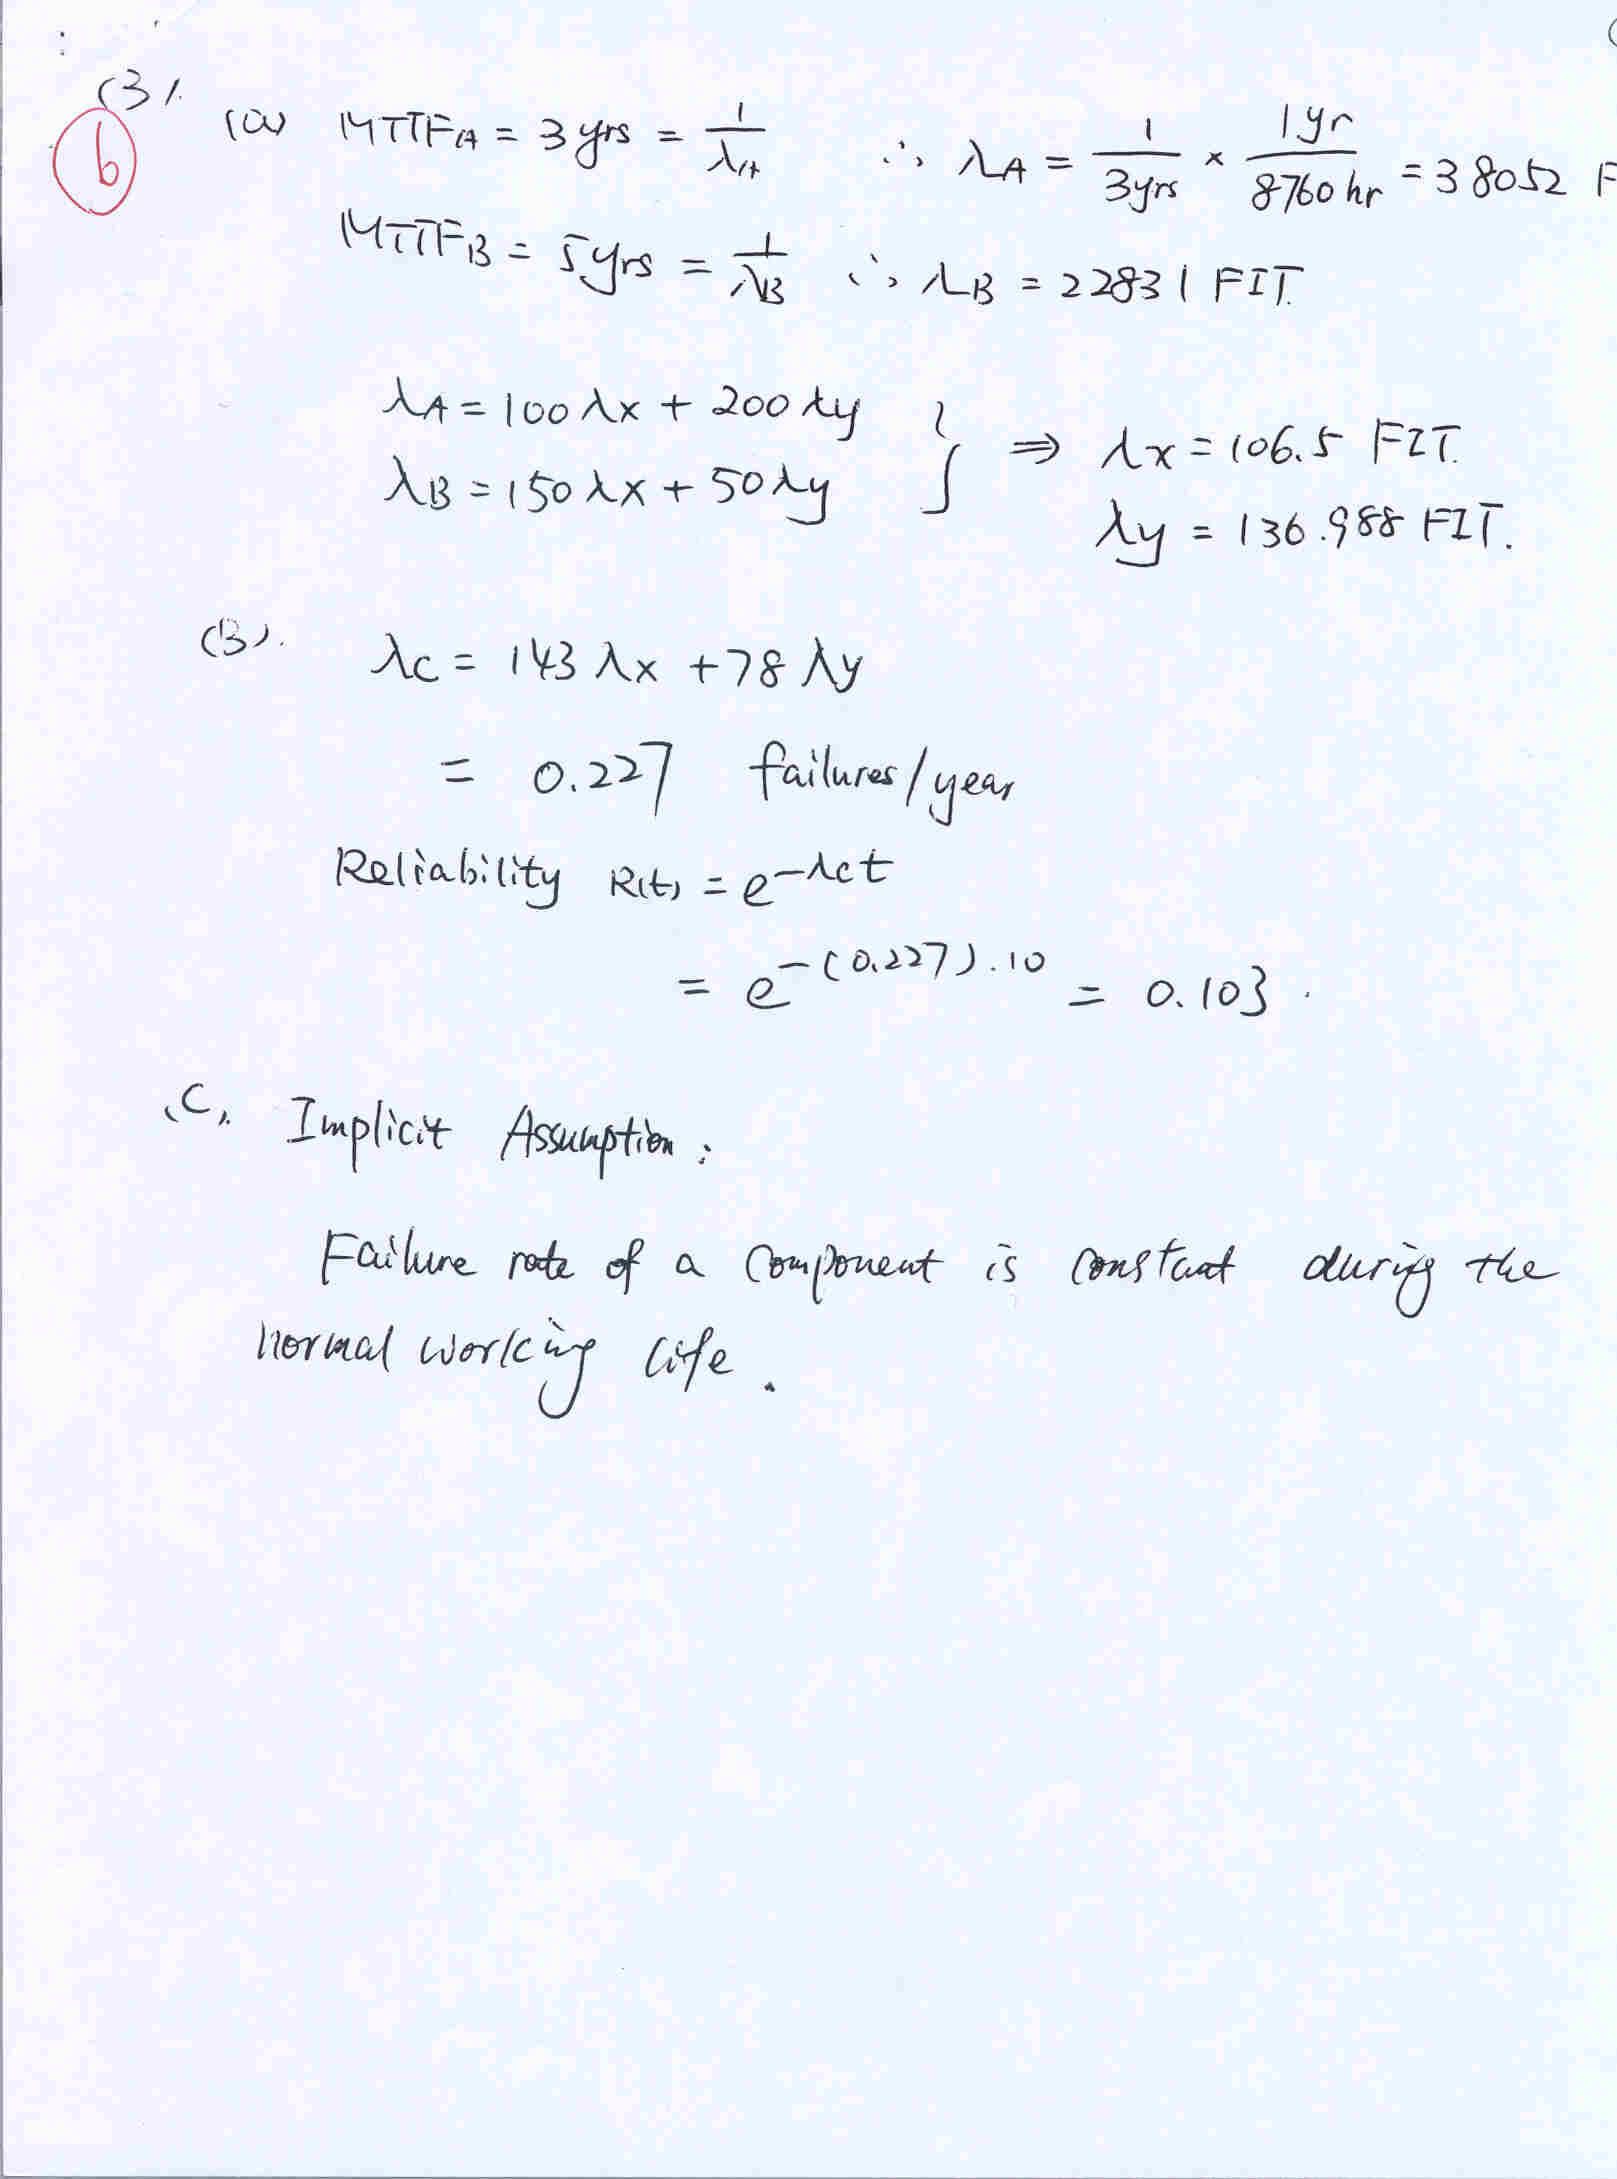 (3).
6
(a) MTTFA = 3 yrs = 1/λA ∴ λA = 1/3yrs × 1yr/8760 hr = 38052 F
MTTFB = 5yrs = 1/λB ∴ λB = 22831 FIT.
λA = 100 λx + 200 λy
λB = 150 λx + 50 λy } ⇒ λx = 106.5 FIT.
λy = 136.988 FIT.
(B). λc = 143 λx + 78 λy
= 0.227 failures/year
Reliability R(t) = e^-λct
= e^-(0.227).10 = 0.103.
(C). Implicit Assumption:
Failure rate of a component is constant during the
normal working life.